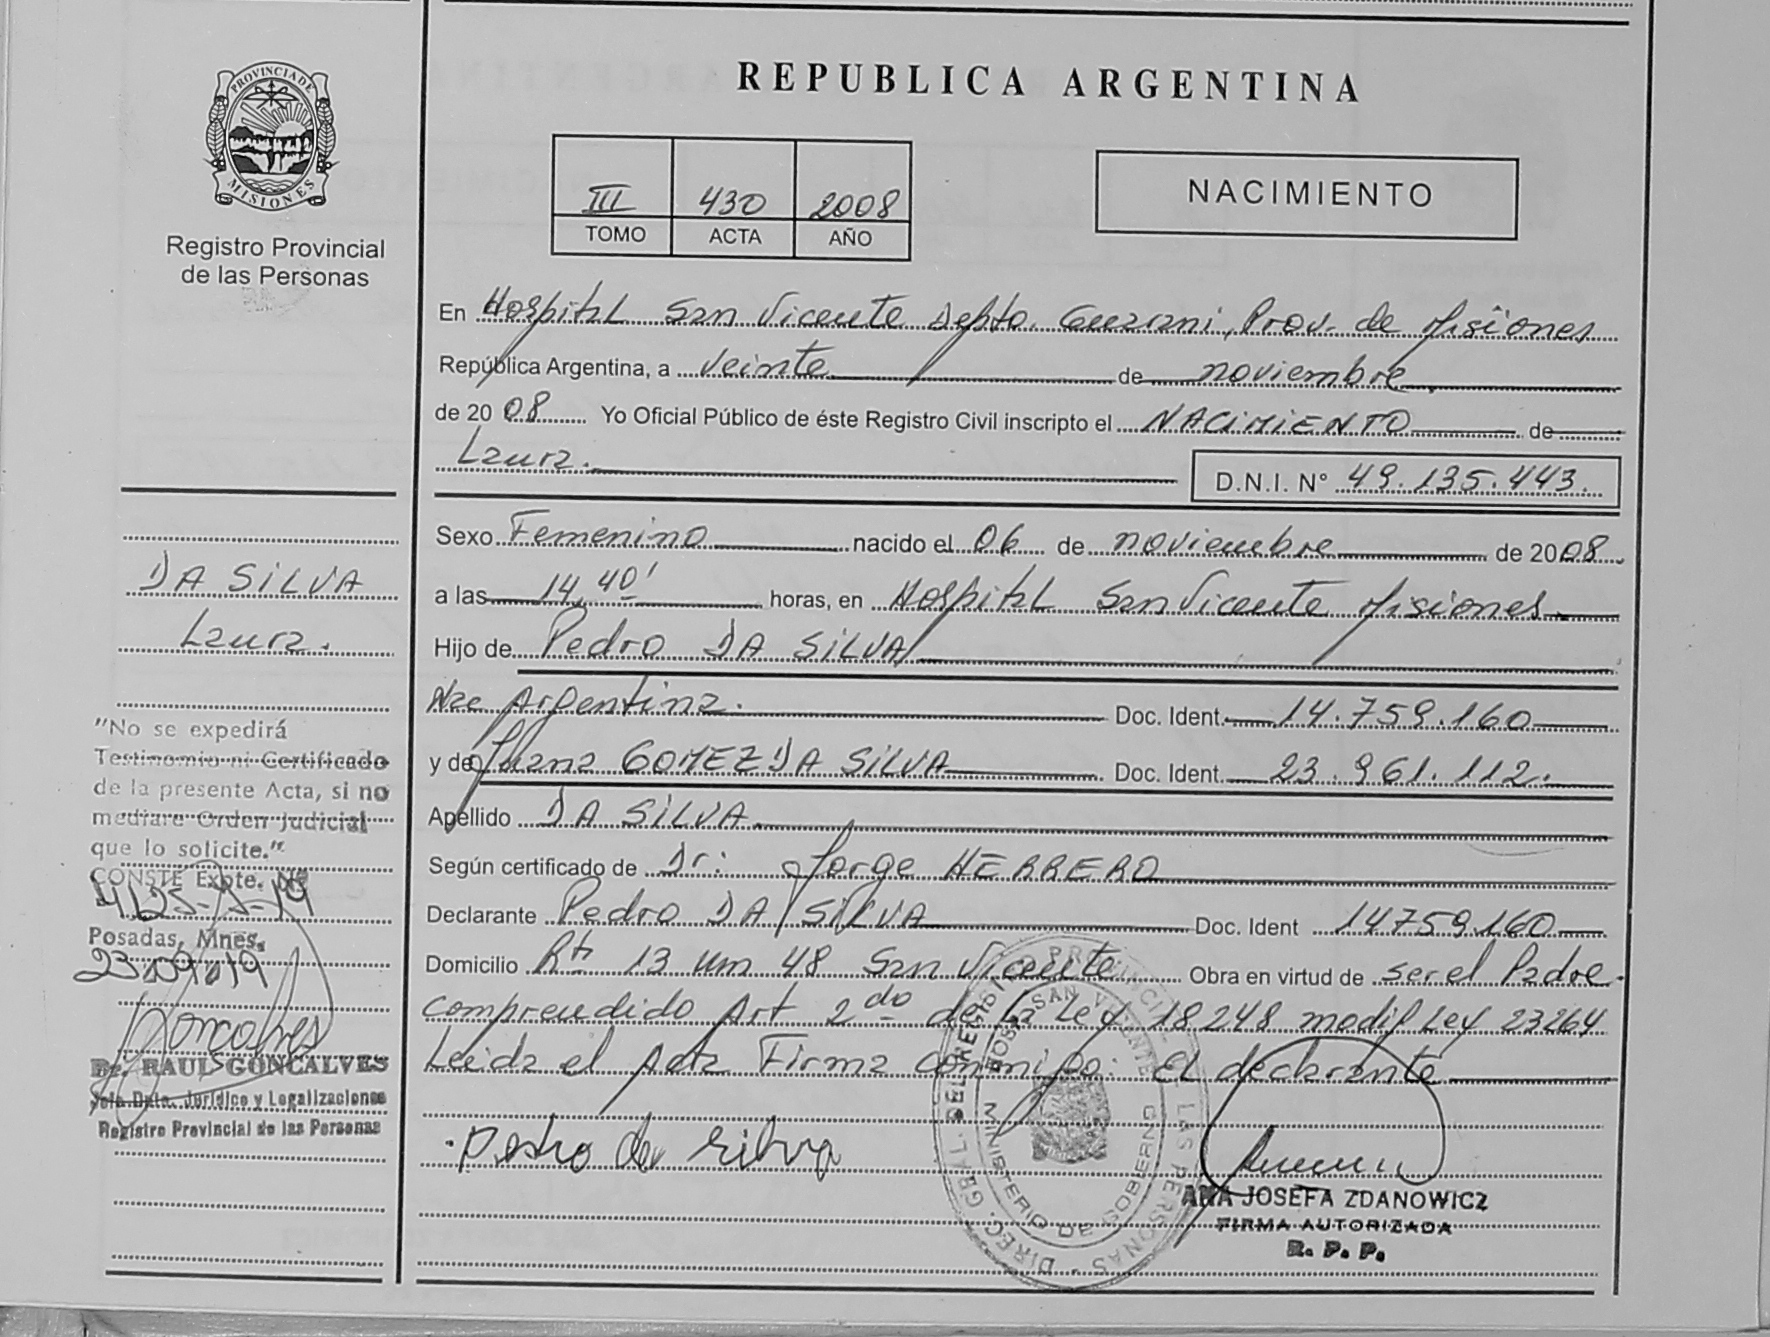 PROVINCIA DE MISIONES
Registro Provincial
de las Personas
DA SILVA
Laura.
"No se expedirá
Testimonio ni Certificado
de la presente Acta, si no
mediare Orden Judicial
que lo solicite."
CONSTE Expte. Nº
Posadas, Mnes.
23/09/19
Goncalves
Dr. RAUL GONCALVES
Jefe Dpto. Jurídico y Legalizaciones
Registro Provincial de las Personas
REPUBLICA ARGENTINA
III 430 2008
TOMO ACTA AÑO
NACIMIENTO
En Hospital San Vicente Depto. Guarani, Prov. de Misiones
República Argentina, a veinte de noviembre
de 2008 Yo Oficial Público de éste Registro Civil inscripto el NACIMIENTO de
Laura. D.N.I. N° 49.135.443.
Sexo Femenino nacido el 06 de noviembre de 2008
a las 14,40' horas, en Hospital San Vicente Misiones
Hijo de Pedro DA SILVA
Nac Argentina. Doc. Ident. 14.759.160
y de Juana GOMEZ DA SILVA Doc. Ident. 23.961.112.
Apellido DA SILVA
Según certificado de Dr: Jorge HERRERO
Declarante Pedro DA SILVA Doc. Ident 14759.160
Domicilio Rta 13 km 48 San Vicente Obra en virtud de ser el Padre
comprendido Art 2do de la Ley 18248 modif Ley 23264
Leida el Acta Firma conmigo: El declarante
Pedro da Silva
DIREC. GRAL. DEL REGISTRO PROVINCIAL DE LAS PERSONAS
HOSP. SAN VICENTE
MINISTERIO DE GOBIERNO
ANA JOSEFA ZDANOWICZ
FIRMA AUTORIZADA
R. P. P.